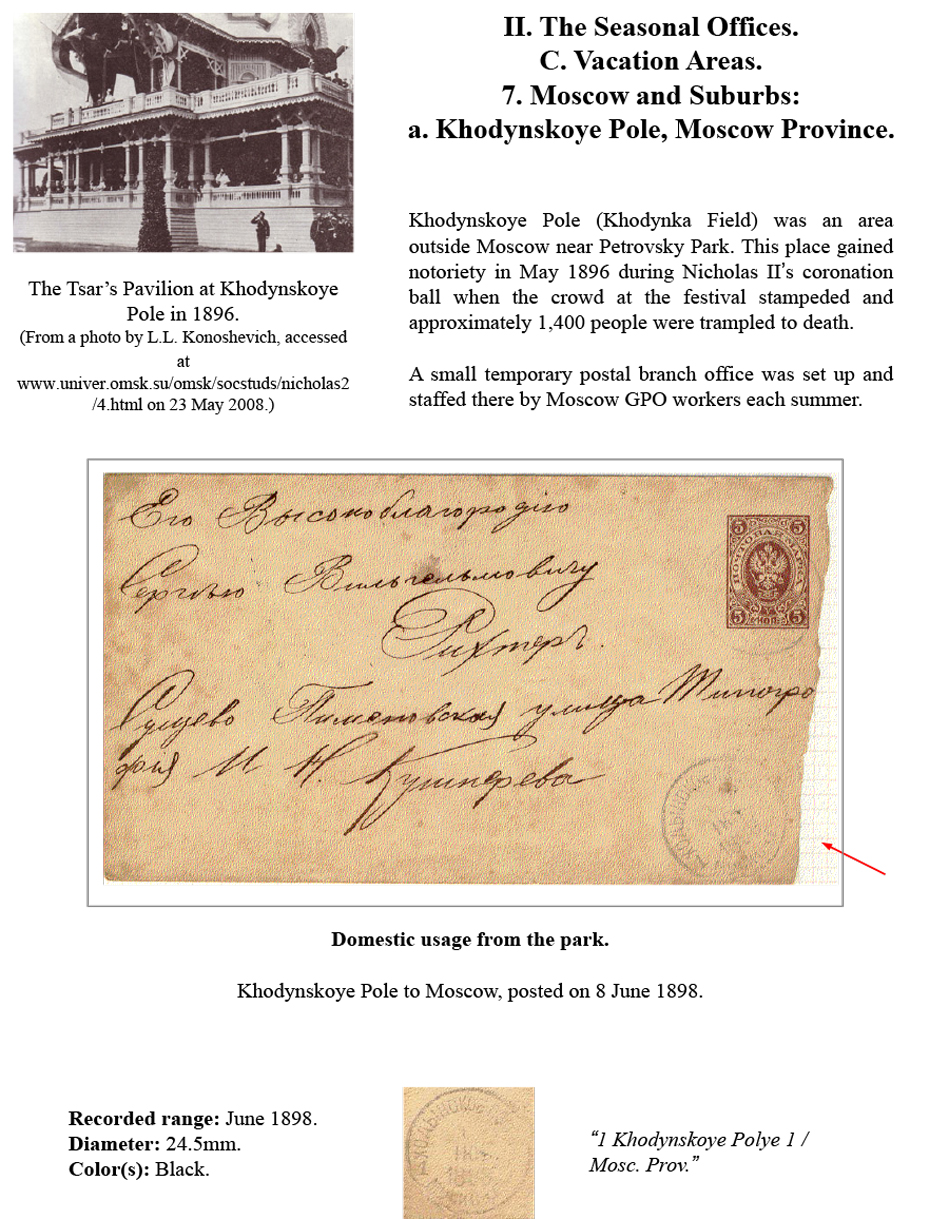 II. The Seasonal Offices.
C. Vacation Areas.
7. Moscow and Suburbs:
a. Khodynskoye Pole, Moscow Province.
The Tsar’s Pavilion at Khodynskoye
Pole in 1896.
(From a photo by L.L. Konoshevich, accessed
at
www.univer.omsk.su/omsk/socstuds/nicholas2
/4.html on 23 May 2008.)
Khodynskoye Pole (Khodynka Field) was an area
outside Moscow near Petrovsky Park. This place gained
notoriety in May 1896 during Nicholas II’s coronation
ball when the crowd at the festival stampeded and
approximately 1,400 people were trampled to death.
A small temporary postal branch office was set up and
staffed there by Moscow GPO workers each summer.
Его Высокоблагородію
Сергѣю Вильгельмовичу
Рихтеръ.
Сущево Пименовская улица Типогра
фія И Н. Кушнерева
5 5
ПОЧТОВАЯ МАРКА
5 КОП. 5
ХОДЫНСКОЕ
Domestic usage from the park.
Khodynskoye Pole to Moscow, posted on 8 June 1898.
Recorded range: June 1898.
Diameter: 24.5mm.
Color(s): Black.
ХОДЫНСКОЕ
“1 Khodynskoye Polye 1 /
Mosc. Prov.”